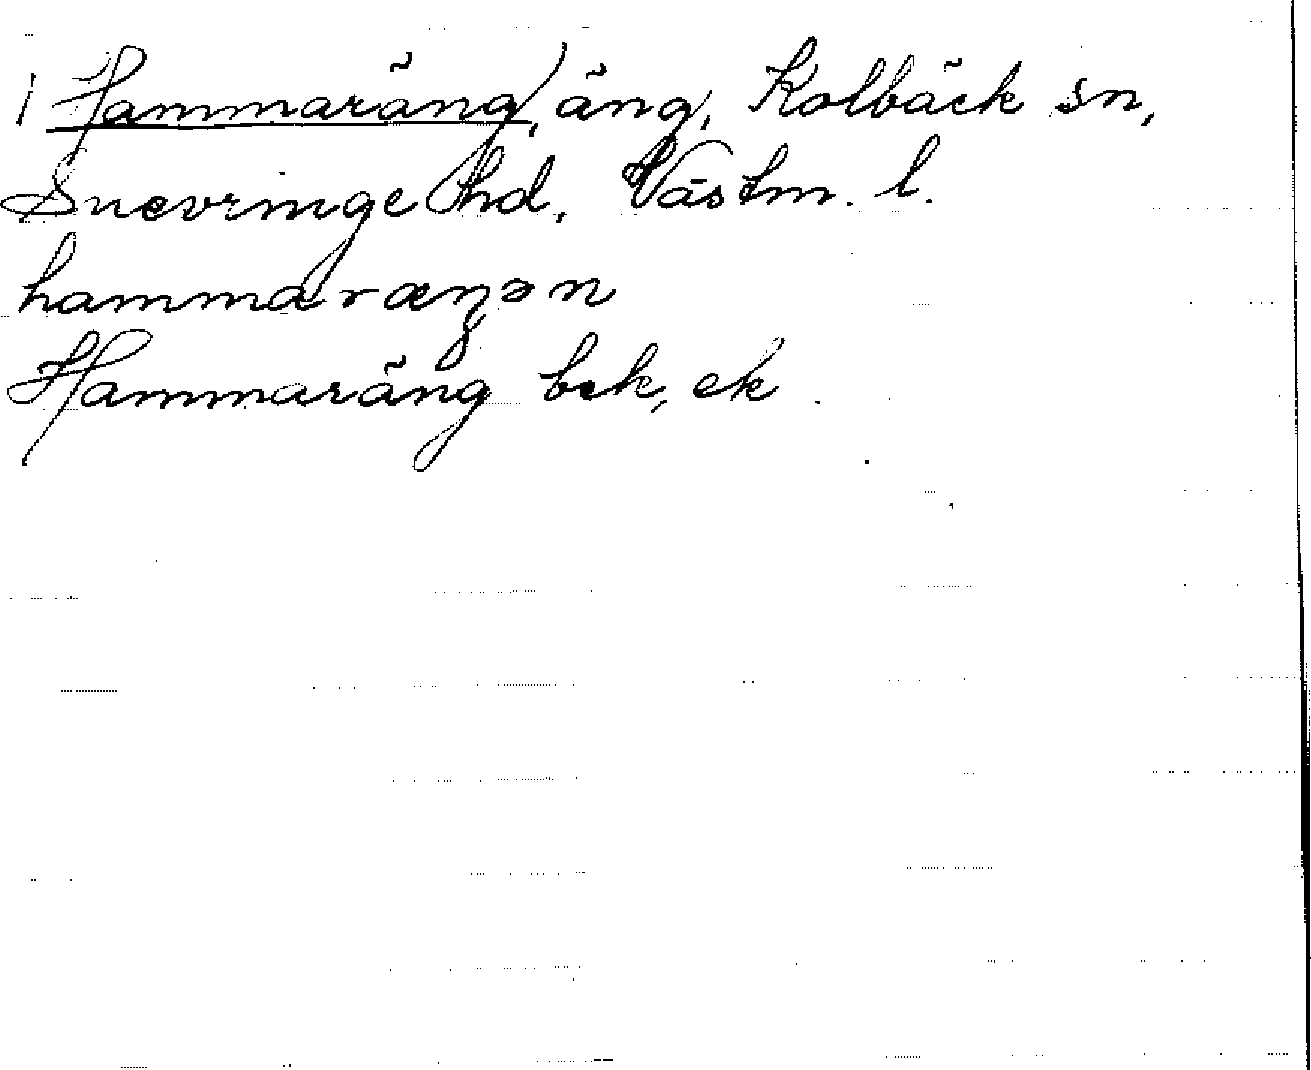 1 Hammaräng, äng, Kolbäck sn,
Snevringe hd, Västm. l.
hammaræŋən
Hammaräng bek, ek